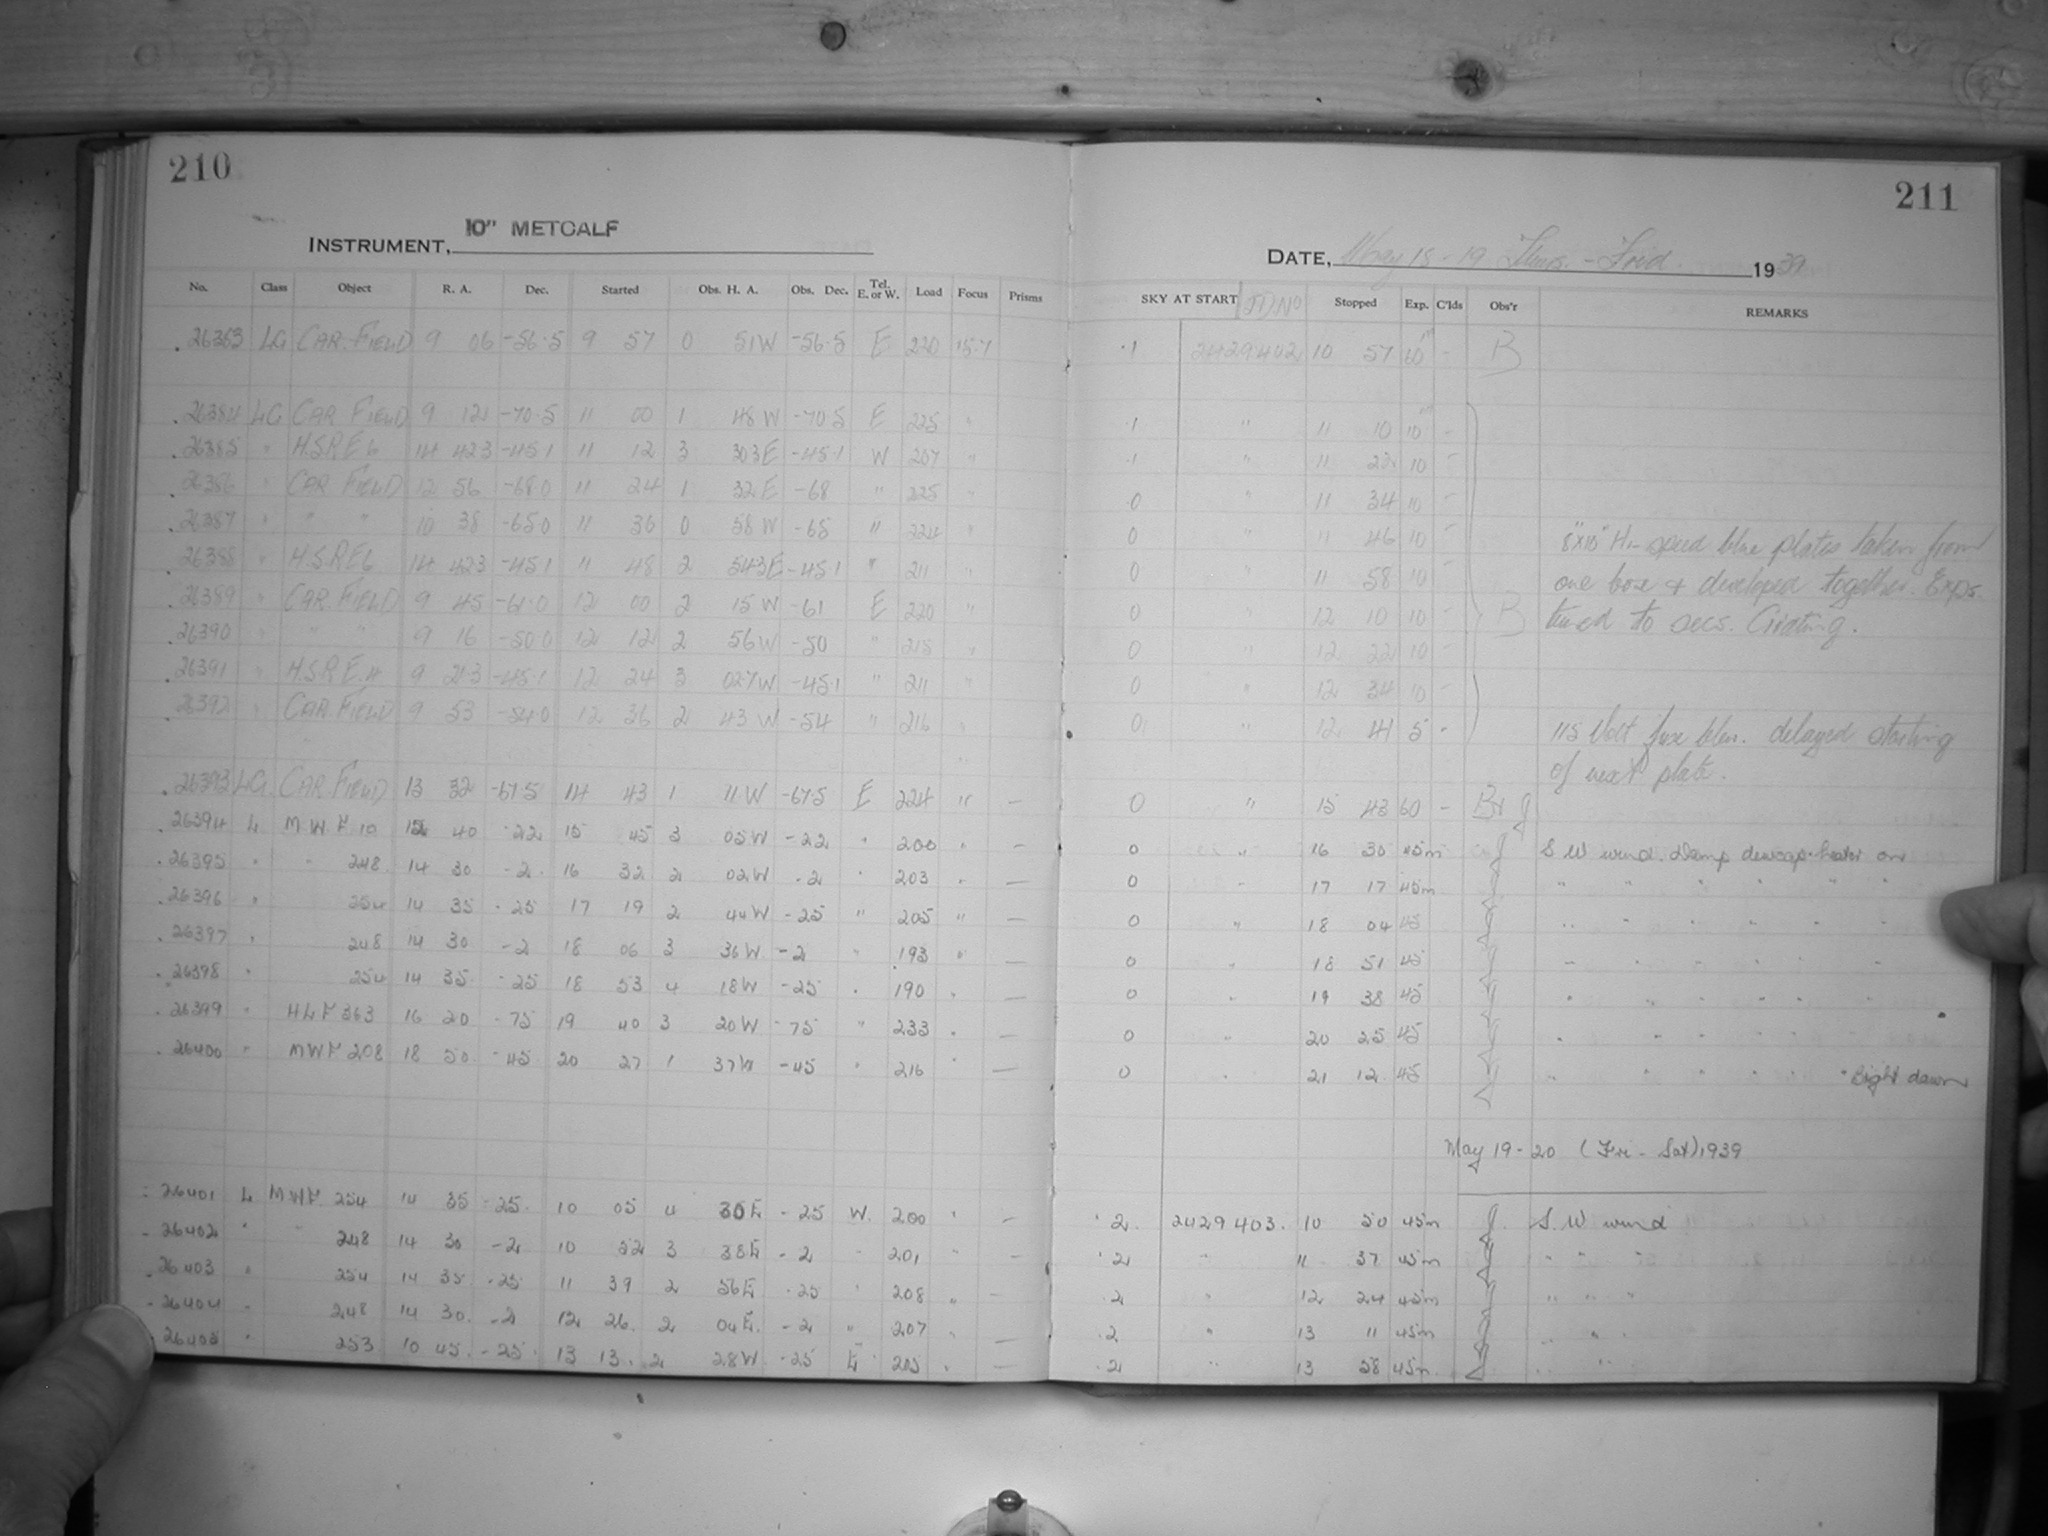 210
211
INSTRUMENT, 10" METCALF
DATE, May 18-19 Thurs. - Frid. 1939
No. Class Object R. A. Dec. Started Obs. H. A. Obs. Dec. Tel. E. or W. Load Focus Prisms SKY AT START JD No Stopped Exp. C'lds Obs'r REMARKS
26383 LG CAR. FIELD 9 06 -56.5 9 57 0 51W -56.5 E 220 15.7 .1 2429402 10 57 60m - B
26384 LG CAR FIELD 9 12 -70.5 11 00 1 48W -70.5 E 225 " .1 " 11 10 10m -
26385 " H.S.R.E6 14 42.3 -45.1 11 12 3 30.3E -45.1 W 207 " .1 " 11 22 10 -
26386 " CAR FIELD 12 56 -68.0 11 24 1 32E -68 " 225 " 0 " 11 34 10 -
26387 " " " 10 38 -65.0 11 36 0 58W -65 " 224 " 0 " 11 46 10 - 8"x10" Hi-speed blue plates taken from
26388 " H.S.R.E6 14 42.3 -45.1 11 48 2 54.3E -45.1 " 211 " 0 " 11 58 10 - one box & developed together. Exps.
26389 " CAR. FIELD 9 45 -61.0 12 00 2 15W -61 E 220 " 0 " 12 10 10 - B timed to secs.
26390 " " " 9 16 -50.0 12 12 2 56W -50 " 215 " 0 " 12 22 10 -
26391 " H.S.R.E.4 9 21.3 -45.1 12 24 3 02.7W -45.1 " 211 " 0 " 12 34 10 -
26392 " CAR. FIELD 9 53 -54.0 12 36 2 43W -54 " 216 " 0 " 12 41 5 - 115 Volt fuse blew. delayed starting
of next plate.
26393 LG. CAR. FIELD 13 32 -67.5 14 43 1 11W -67.5 E 224 " - 0 " 15 43 60 -
26394 L M.W.F. 10 40 -22 15 45 3 05W -22 " 200 " - 0 " 16 30 45m S W wind. Damp dewcap heater on
26395 " " 248 14 30 -2 16 32 2 02W -2 " 203 " - 0 " 17 17 45m " " " " " "
26396 " 254 14 35 -25 17 19 2 44W -25 " 205 " - 0 " 18 04 45 " " " " " "
26397 " 248 14 30 -2 18 06 3 36W -2 " 193 " 0 " 18 51 45 " " " " " "
26398 " 254 14 35 -25 18 53 4 18W -25 " 190 " - 0 " 19 38 45 " " " " " "
26399 " H L F 363 16 20 -75 19 40 3 20W -75 " 233 " - 0 " 20 25 45 " " " " "
26400 " MWF 208 18 50 -45 20 27 1 37W -45 " 216 " - 0 " 21 12 45 " " " " " " Bright dawn
May 19-20 (Fri - Sat) 1939
26401 L MWF. 254 14 35 -25 10 05 4 30E -25 W. 200 " - .2 2429403. 10 50 45m S. W wind
26402 " " 248 14 30 -2 10 52 3 38E -2 " 201 " - .2 " 11 37 45m " " "
26403 " 254 14 35 -25 11 39 2 56E -25 " 208 " - .2 " 12 24 45m " " "
26404 " 248 14 30 -2 12 26 2 04E. -2 " 207 " - .2 " 13 11 45m " " "
26405 " 253 10 45 -25 13 13 2 28W -25 E " 205 " - .2 " 13 58 45m " "